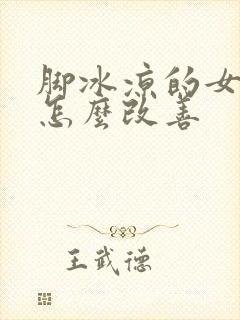 脚冰凉的女
怎麼改善
王武德